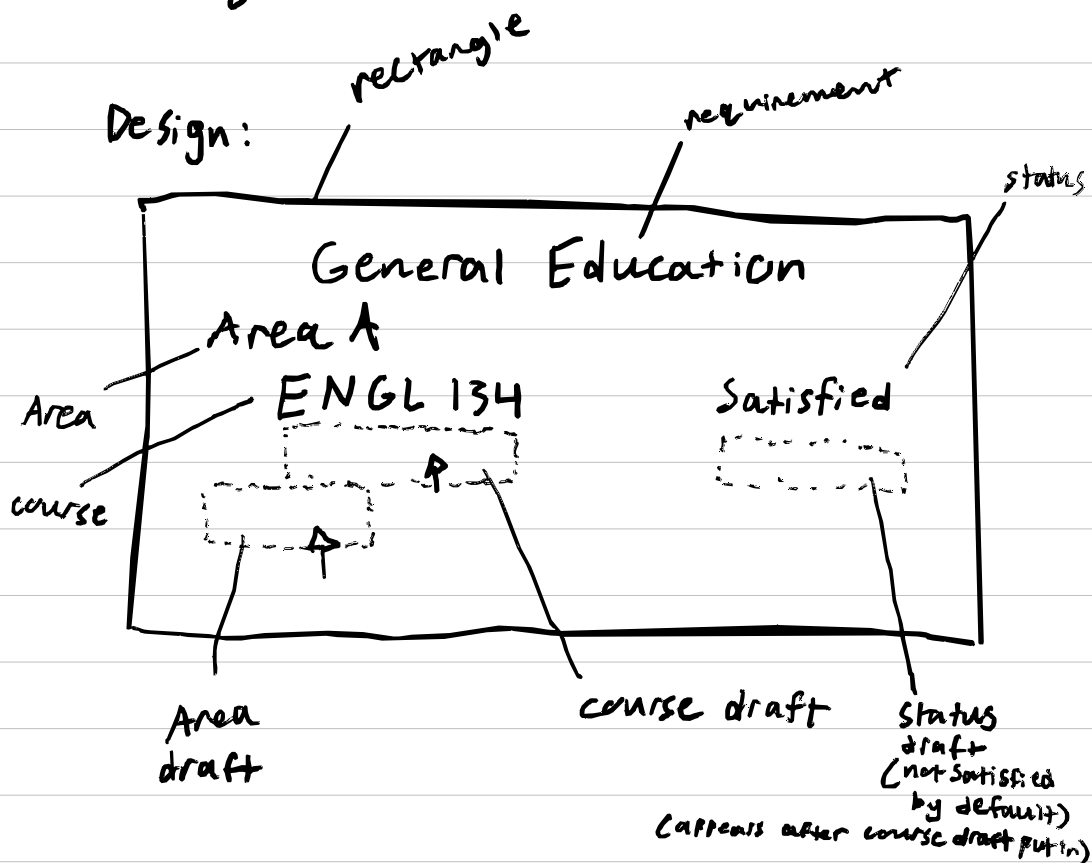 rectangle
requirement
Design:
status
General Education
Area A
Area
ENGL 134
Satisfied
course
Area
draft
course draft
status
draft
(not satisfied
by default)
(appears after course draft put in)